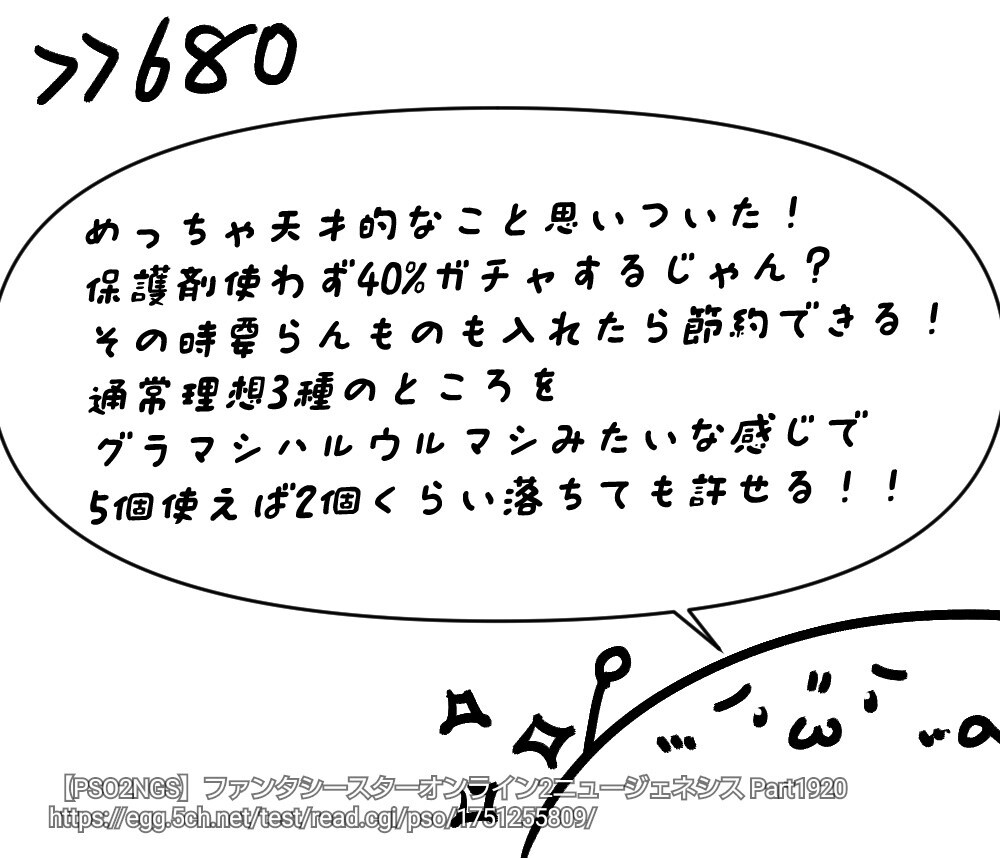 >>680
めっちゃ天才的なこと思いついた！
保護剤使わず40%ガチャするじゃん？
その時要らんものも入れたら節約できる！
通常理想3種のところを
グラマシハルウルマシみたいな感じで
5個使えば2個くらい落ちても許せる！！
【PSO2NGS】ファンタシースターオンライン2ニュージェネシス Part1920
https://egg.5ch.net/test/read.cgi/pso/1751255809/